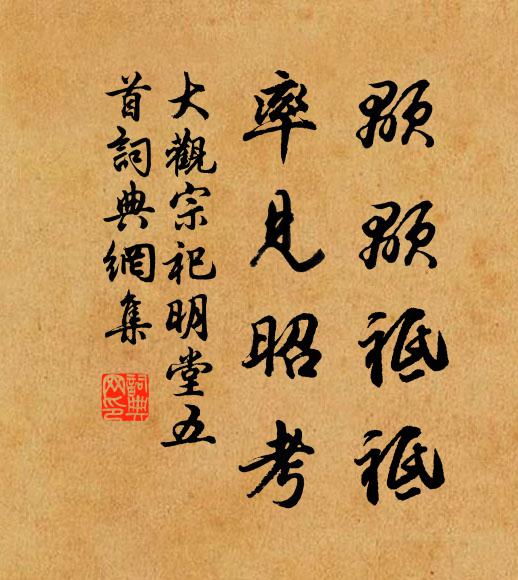 顒顒祗祗
率見昭考
大觀宗祀明堂五
首詞典網集
詞典網印